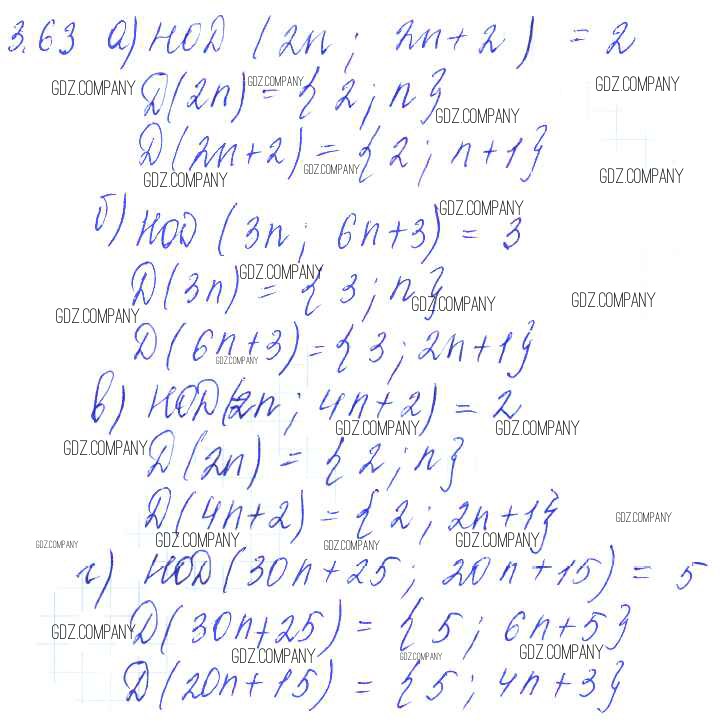 3.63 а) НОД (2n ; 2n+2) = 2
GDZ.COMPANY GDZ.COMPANY GDZ.COMPANY
Д(2n) = {2 ; n}
GDZ.COMPANY
Д(2n+2) = {2 ; n+1}
GDZ.COMPANY GDZ.COMPANY GDZ.COMPANY
GDZ.COMPANY
б) НОД (3n ; 6n+3) = 3
GDZ.COMPANY
Д(3n) = {3 ; n}
GDZ.COMPANY GDZ.COMPANY GDZ.COMPANY
Д(6n+3) = {3 ; 2n+1}
GDZ.COMPANY
в) НОД(2n ; 4n+2) = 2
GDZ.COMPANY GDZ.COMPANY GDZ.COMPANY
Д(2n) = {2 ; n}
Д(4n+2) = {2 ; 2n+1}
GDZ.COMPANY
GDZ.COMPANY GDZ.COMPANY GDZ.COMPANY GDZ.COMPANY
г) НОД(30n+25 ; 20n+15) = 5
GDZ.COMPANY Д(30n+25) = {5 ; 6n+5}
GDZ.COMPANY GDZ.COMPANY GDZ.COMPANY
Д(20n+15) = {5 ; 4n+3}